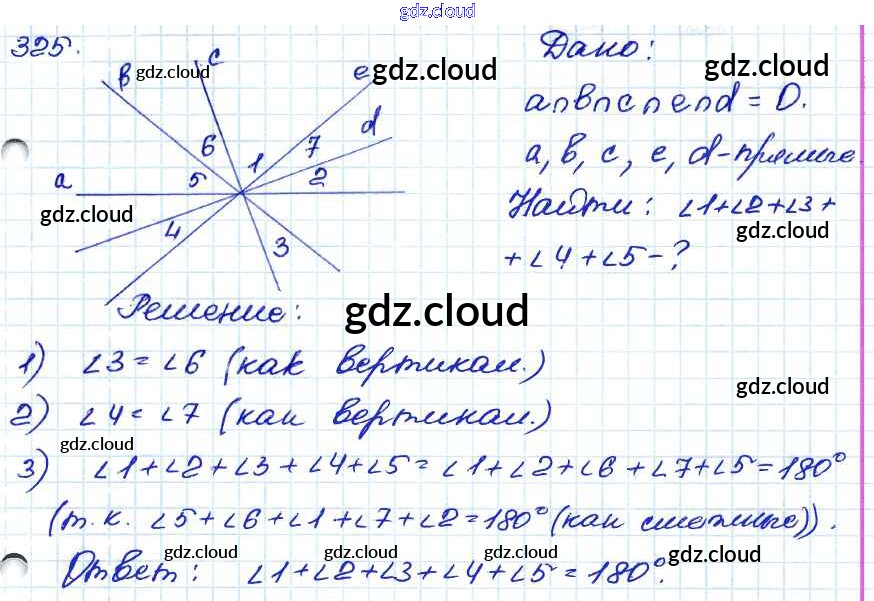 gdz.cloud
325.
Дано:
в gdz.cloud c e gdz.cloud gdz.cloud
a∩в∩c∩e∩d = O.
d
6 1 7
a, в, c, e, d - прямые.
a 5 2
gdz.cloud
Найти: ∠1+∠2+∠3+
gdz.cloud
4 3
+∠4+∠5-?
Решение: gdz.cloud
1) ∠3=∠6 (как вертикал.)
gdz.cloud
2) ∠4=∠7 (как вертикал.)
gdz.cloud
3) ∠1+∠2+∠3+∠4+∠5=∠1+∠2+∠6+∠7+∠5=180°
(т.к. ∠5+∠6+∠1+∠7+∠2=180° (как смежные)).
gdz.cloud gdz.cloud gdz.cloud gdz.cloud
Ответ: ∠1+∠2+∠3+∠4+∠5=180°.